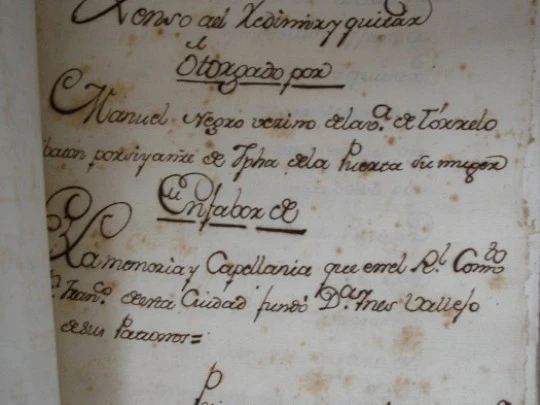 Zenso al Redimir y quitar
Otorgado por
Manuel Negro vecino de la v.ª de Torrelo
baton por si y a nre de Jpha de la Puerta su muger
En fabor de
La memoria y Capellania que en el R.l Conv.to
Fran.co de esta Ciudad fundó D.ª Ines Vallejo
de sus Patronos =